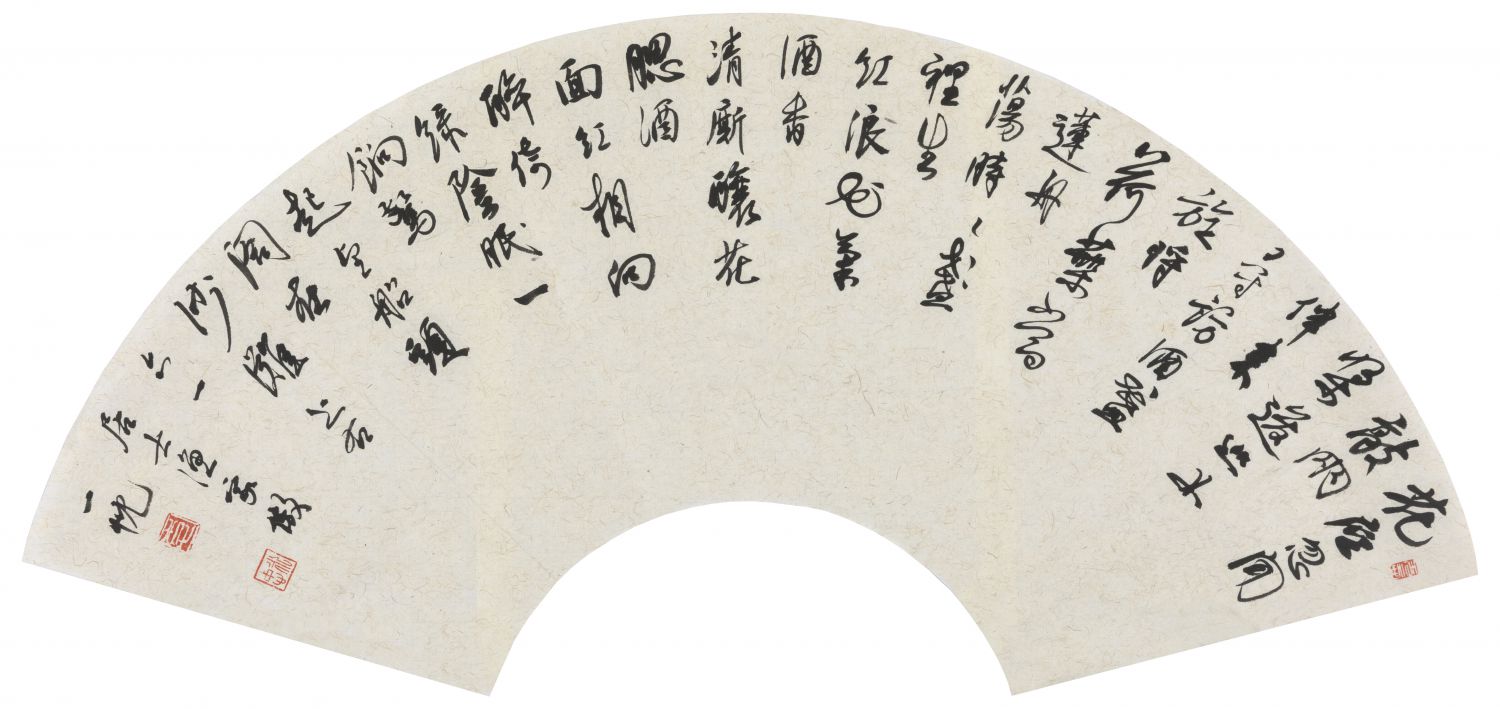 花底忽聞
敲兩
槳逡巡女
伴來
尋訪酒盞
旋將
荷葉當
蓮舟
蕩時〻盞
裡生
紅浪花氣
酒香
清厮釀花
腮酒
面紅相向
醉倚
綠陰眠一
餉驚
起望船頭
閣在
沙灘上右
六一
居士漁家傲
一忱